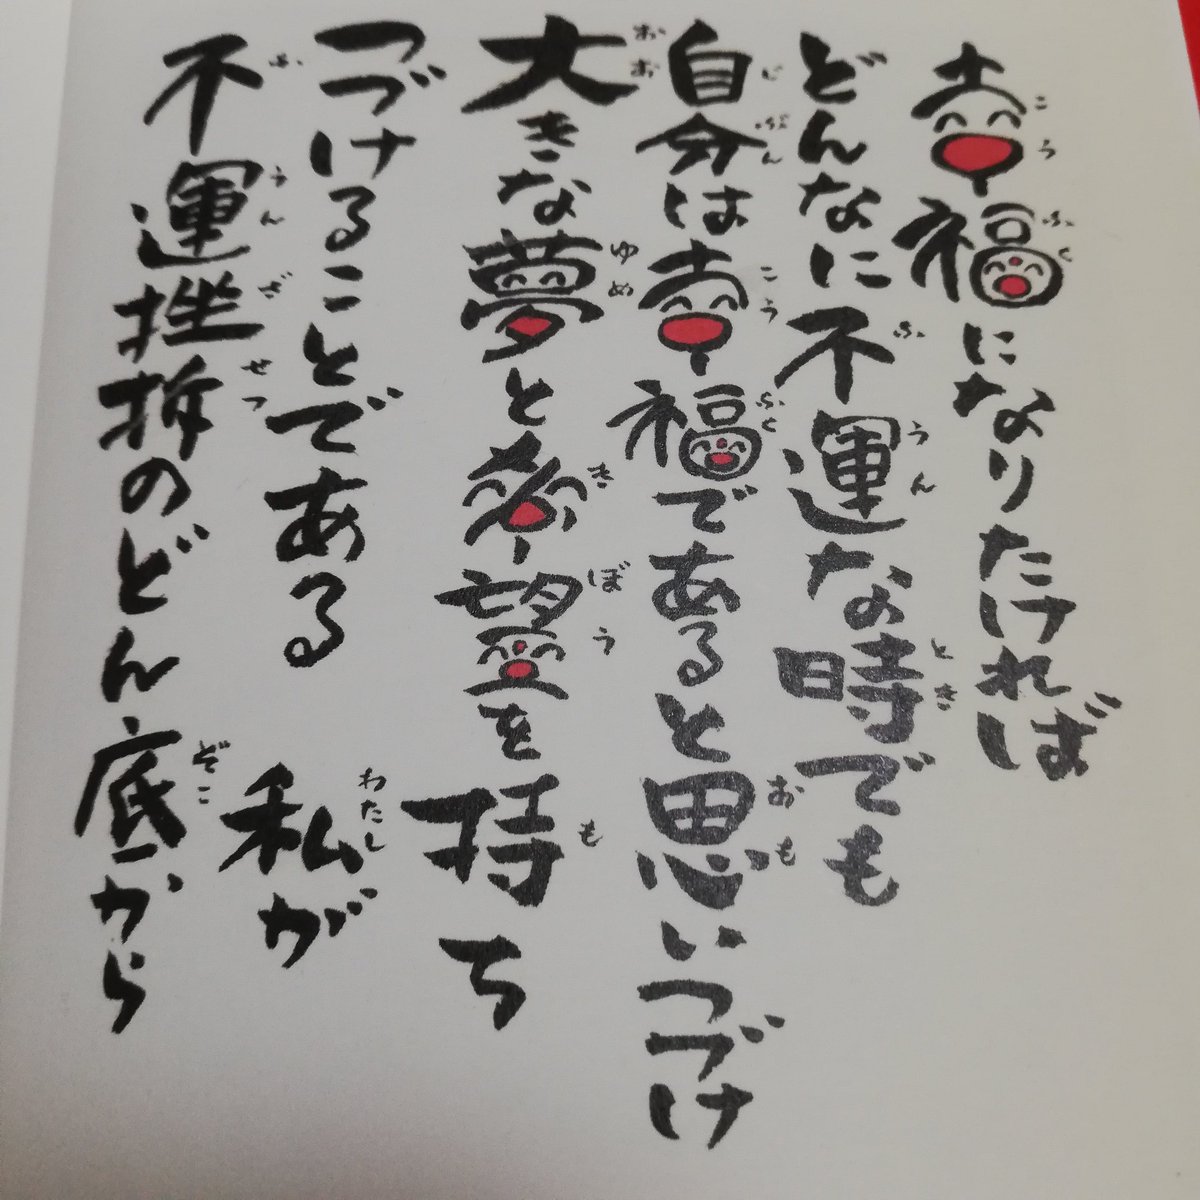 幸福になりたければ
どんなに不運な時でも
自分は幸福であると思いつづけ
大きな夢と希望を持ち
つづけることである 私が
不運挫折のどん底から